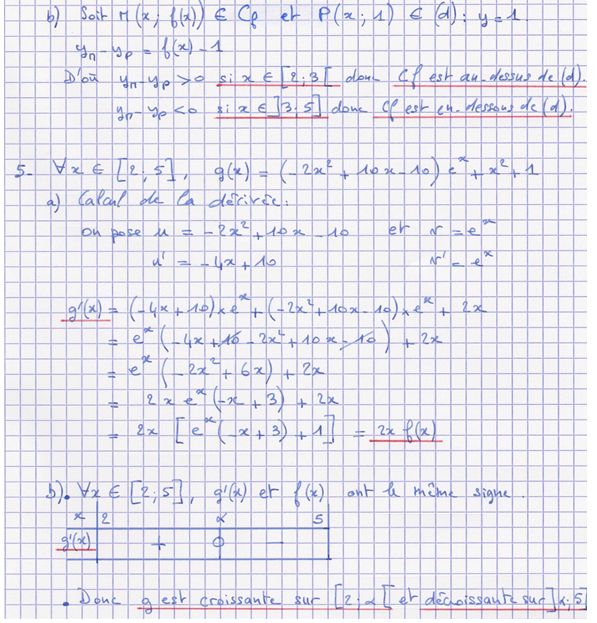 b) Soit M(x; f(x)) ∈ Cf et P(x; 1) ∈ (d): y = 1
yM - yP = f(x) - 1
D'où yM - yP > 0 si x ∈ [2; 3[ donc Cf est au-dessus de (d).
yM - yP < 0 si x ∈ ]3; 5] donc Cf est en-dessous de (d).
5- ∀x ∈ [2; 5], g(x) = (-2x² + 10x - 10) eˣ + x² + 1
a) Calcul de la dérivée:
on pose u = -2x² + 10x - 10 et v = eˣ
u' = -4x + 10 v' = eˣ
g'(x) = (-4x + 10) × eˣ + (-2x² + 10x - 10) × eˣ + 2x
= eˣ (-4x + 10 - 2x² + 10x - 10) + 2x
= eˣ (-2x² + 6x) + 2x
= 2x eˣ (-x + 3) + 2x
= 2x [eˣ (-x + 3) + 1] = 2x f(x)
b). ∀x ∈ [2; 5], g'(x) et f(x) ont le même signe.
x 2 α 5
g'(x) + 0 -
. Donc g est croissante sur [2; α[ et décroissante sur ]α; 5]